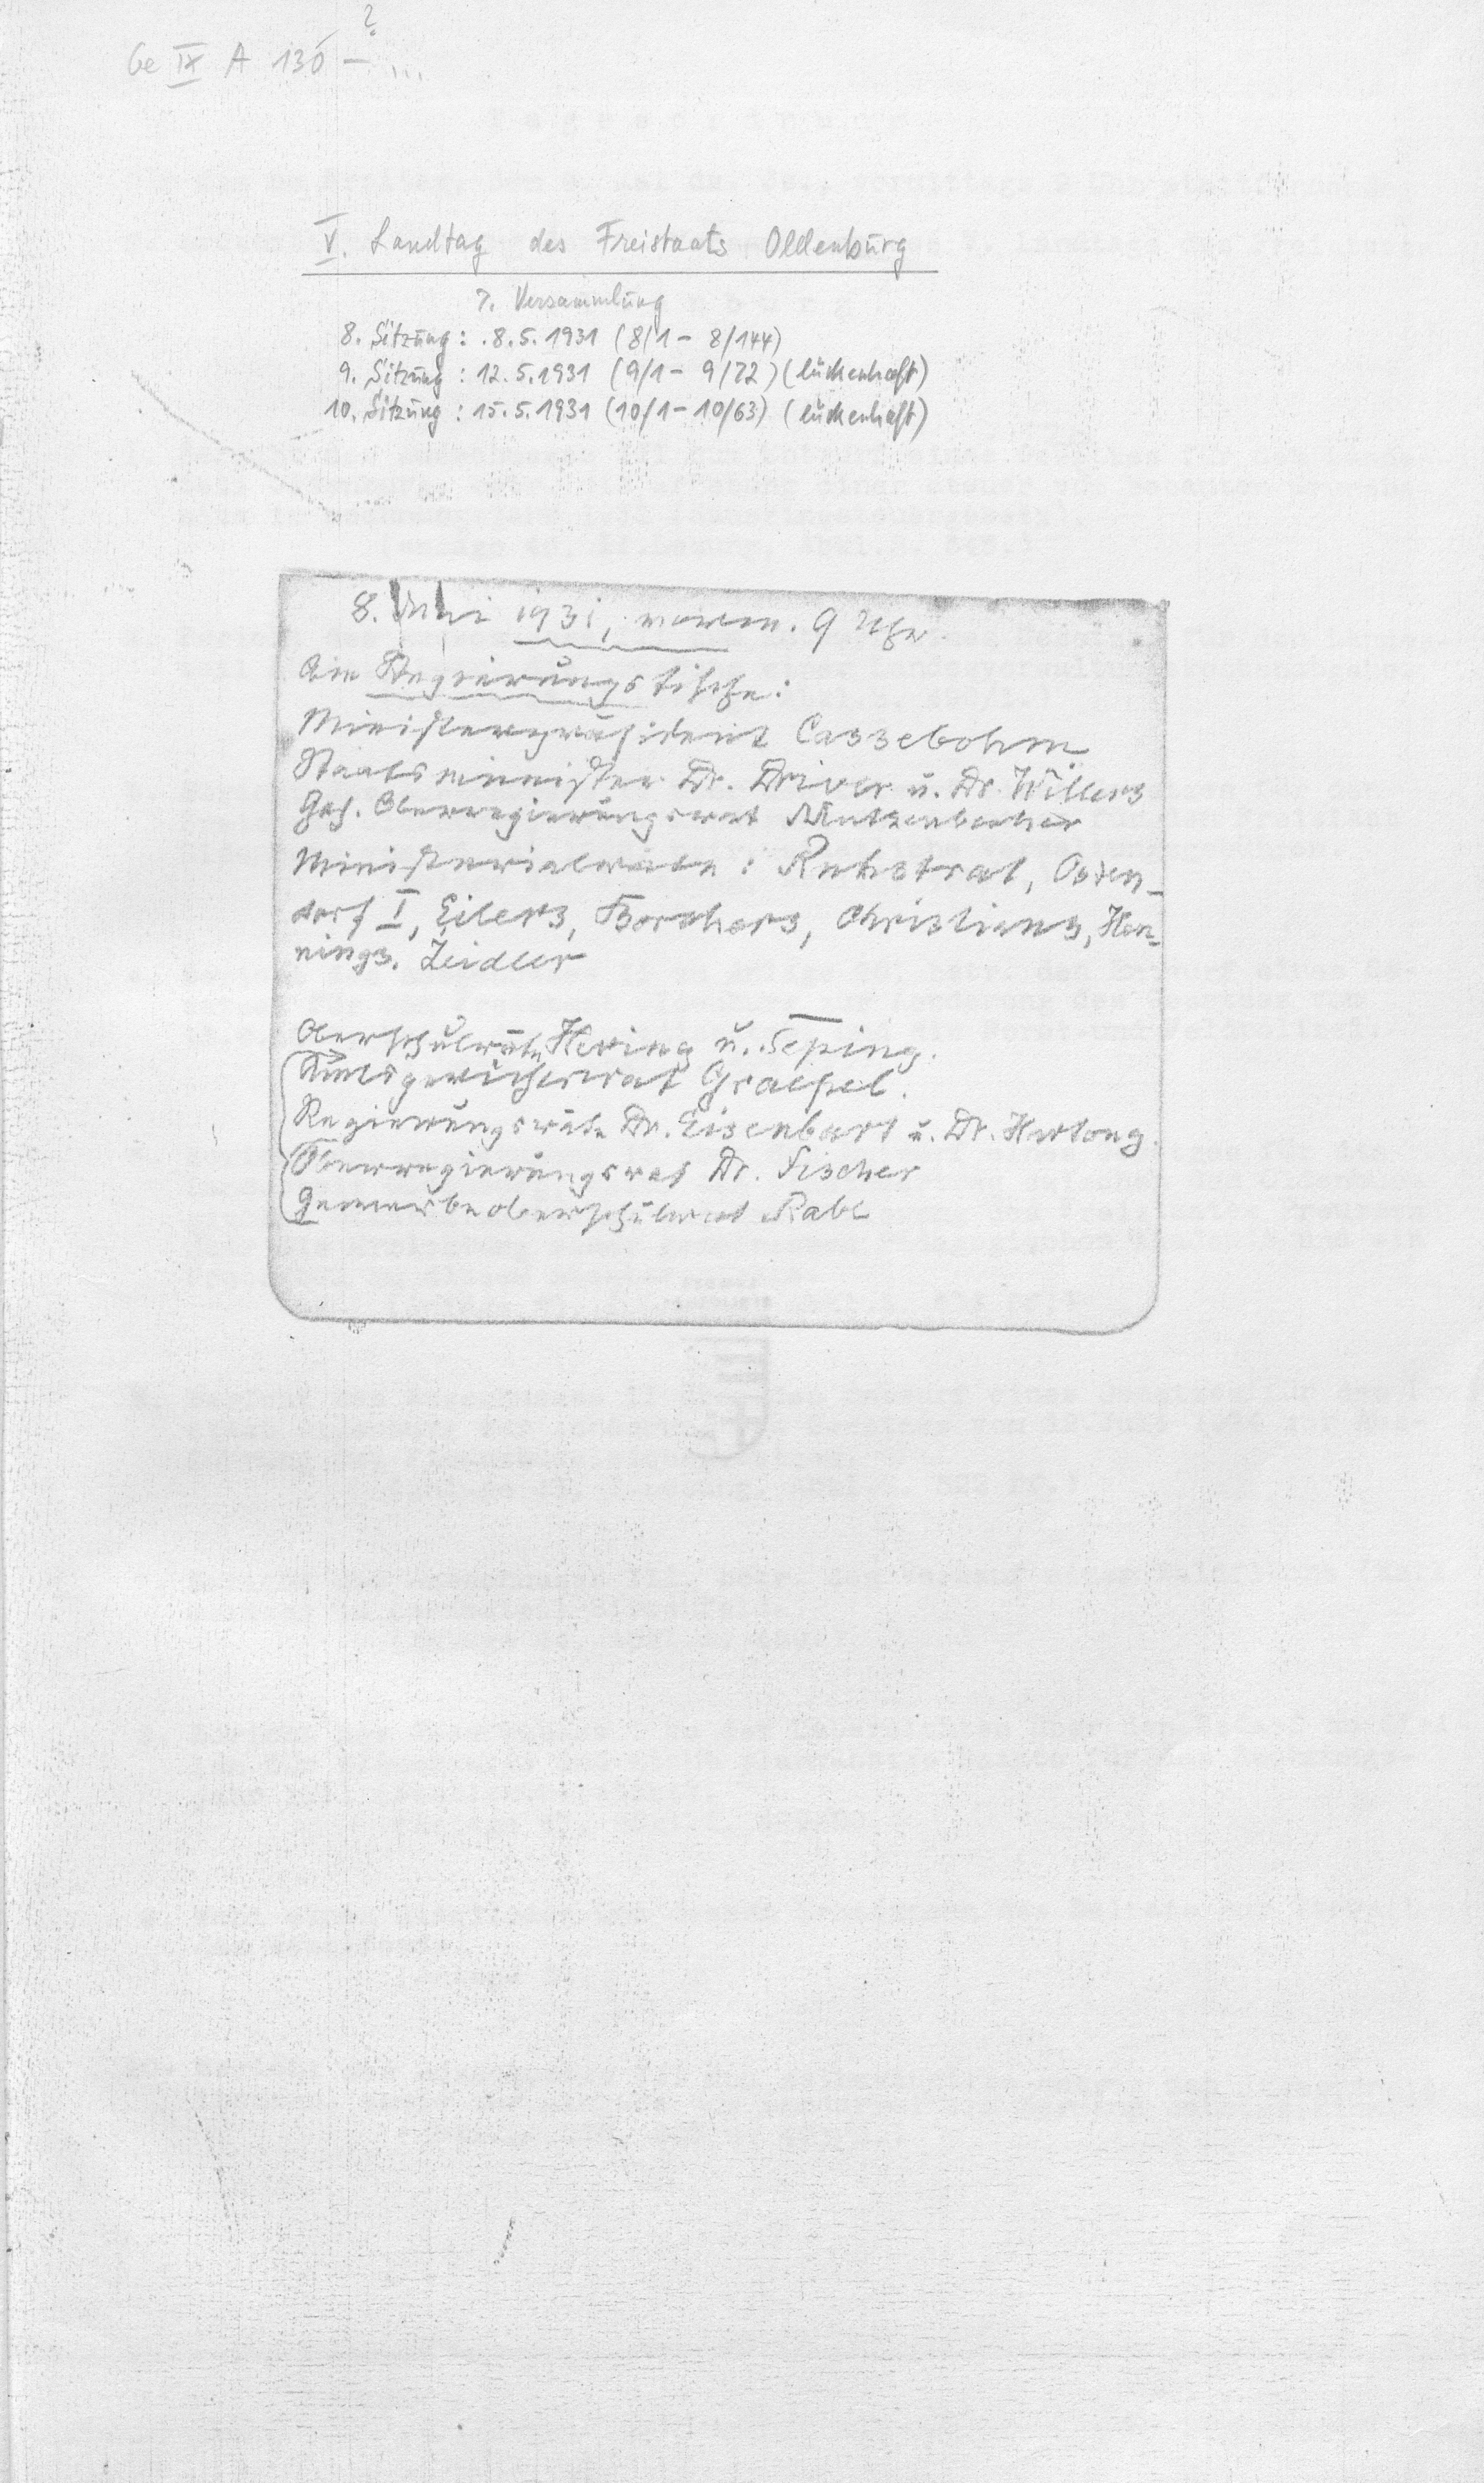 Ge IX A 130 – ? ...
V. Landtag des Freistaats Oldenburg
7. Versammlung
8. Sitzung: 8.5.1931 (8/1 – 8/144)
9. Sitzung: 12.5.1931 (9/1 – 9/72) (lückenhaft)
10. Sitzung: 15.5.1931 (10/1 – 10/63) (lückenhaft)
8. 1931, 9 Uhr.
Am Regierungstische:
Ministerpräsident Cassebohm
Staatsminister Dr. Driver u. Dr. Willers
Geh. Oberregierungsrat Mutzenbecher
Ministerialräte: Ruhstrat, Osten-
dorf I, Eilers, Borchers, Christians, Hen-
nings, Zeidler
Oberschulräte Hering u.
Amtsgerichtsrat Graepel.
Regierungsräte Dr. Eisenbart u. Dr. Hartong.
Oberregierungsrat Dr. Fischer
Gewerbeoberschulrat Rabe